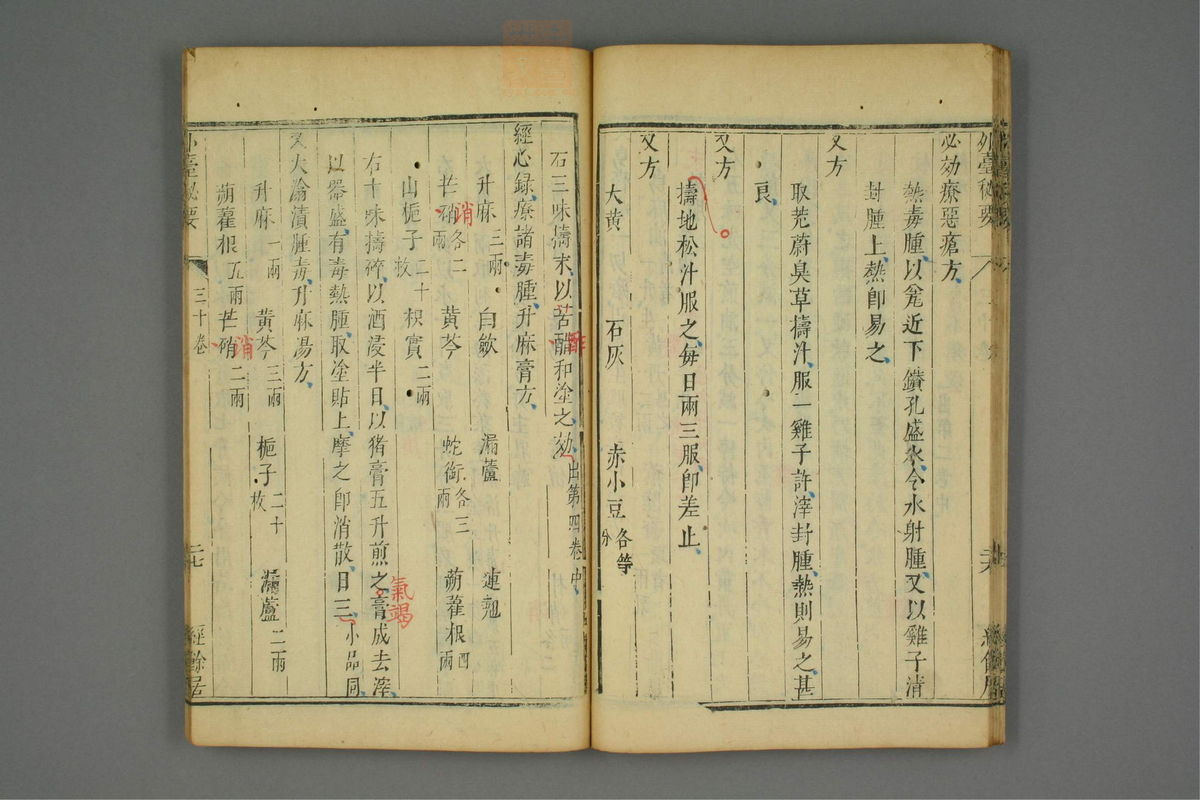 外臺秘要
必効療惡瘡方
熱毒腫以瓮近下鑽孔盛水令水射腫又以雞子清
封腫上熱即易之
又方
取茺蔚臭草擣汁服一雞子許滓封腫熱則易之甚
良
又方
擣地松汁服之每日兩三服即差止
又方
大黄 石灰 赤小豆各等分
右三味擣末以苦醋和塗之効出第四卷中
醡
經心録療諸毒腫升麻膏方
升麻三兩 白歛 漏蘆 連翹
芒硝各二兩 黄芩 蛇銜各三兩 蒴藋根四兩
消
山梔子二十枚 枳實二兩
右十味擣碎以酒浸半日以猪膏五升煎之膏成去滓
氣竭
以器盛有毒熱腫取塗貼上摩之即消散日三小品同
又大淪漬腫毒升麻湯方
升麻一兩 黄芩三兩 梔子二十枚 漏蘆二兩
蒴藋根五兩 芒硝二兩
消
外臺秘要 三十卷 二七 經餘居